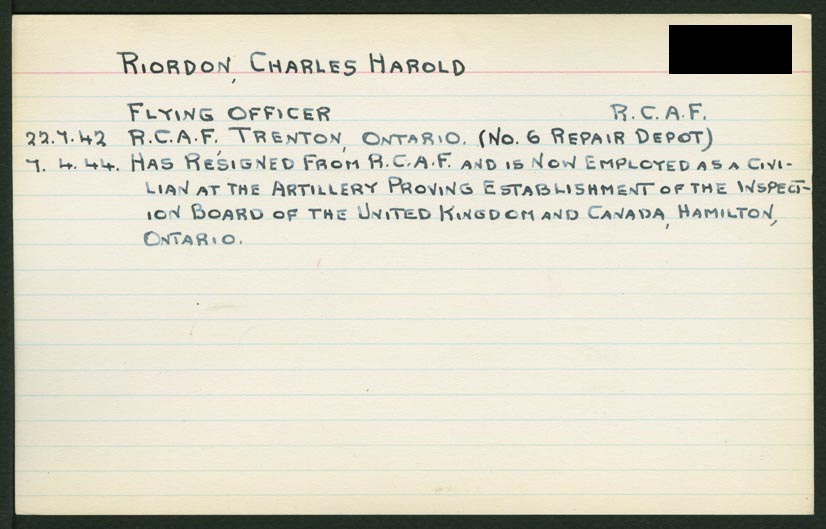 RIORDON, CHARLES HAROLD
FLYING OFFICER R.C.A.F.
22.7.42 R.C.A.F., TRENTON, ONTARIO. (NO. 6 REPAIR DEPOT)
7. 4. 44. HAS RESIGNED FROM R.C.A.F. AND IS NOW EMPLOYED AS A CIVI-
LIAN AT THE ARTILLERY PROVING ESTABLISHMENT OF THE INSPECT-
ION BOARD OF THE UNITED KINGDOM AND CANADA, HAMILTON,
ONTARIO.